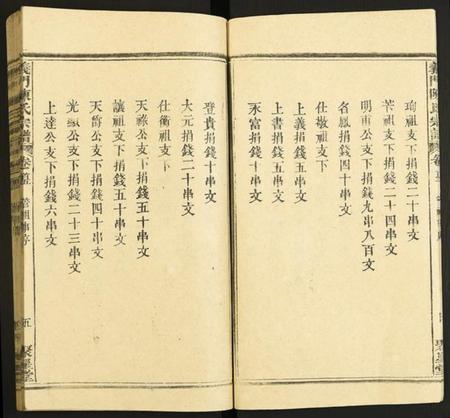 琦祖支下捐錢二十串文
芹祖支下捐錢二十四串文
明甫公支下捐錢九串八百文
名鳳捐錢四十串文
仕敬祖支下
上義捐錢十串文
上書捐錢十串文
永富捐錢十串文
登貴捐錢十串文
大元捐錢二十串文
仕衡祖支下
天祿公支下捐錢五十串文
讓祖支下捐錢五十串文
天爵公支下捐錢四十串文
光 公支下捐錢二十三串文
上達公支下捐錢六串文
義門陳氏宗譜 卷首
五
聚星堂
義門陳氏宗譜 卷首
聚星堂